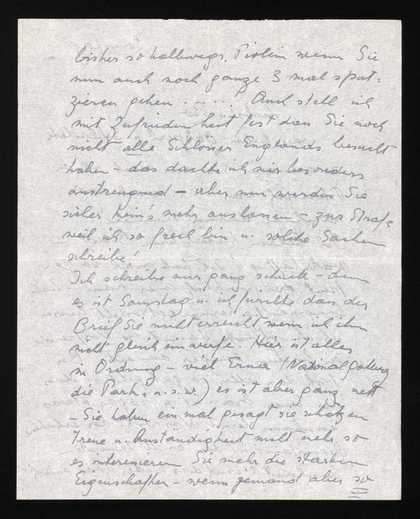 bisher so halbwegs. Tirlein wenn Sie
nun auch noch ganze 3 mal spat-
zieren gehen ..... Auch stell ich
mit Zufriedenheit fest dass Sie noch
nicht alle Schlösser Englands besucht
haben – das dachte ich mir besonders
anstrengend – aber nun werden Sie
sicher kein's mehr auslassen – zur Strafe
weil ich so frech bin u. solche Sachen
schreibe!
Ich schreibe nur ganz schnell – denn
es ist Samstag u. ich fürchte dass der
Brief Sie nicht erreicht wenn ich ihn
nicht gleich einwerfe. Hier ist alles
in Ordnung – viel Erna (National Gallery
die Parks u.s.w.) es ist aber ganz nett
– Sie haben einmal gesagt sie schätzen
Treue u. Anständigkeit nicht mehr so
es interessieren Sie mehr die starken
Eigenschaften – wenn jemand aber so